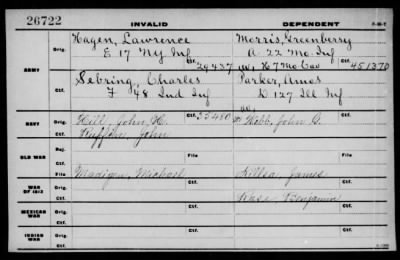 26722 INVALID DEPENDENT
Hagen, Lawrence Morris, Greenberry
Orig. E 17 Ny Inf Orig. A. 22 Mo. Inf
Ctf. 29437 Ctf. H 7 Mo Cav 451370
ARMY
Sebring, Charles Parker, Amos
Orig. F 48 Ind Inf Orig. D 127 Ill Inf
Ctf. Ctf.
NAVY
Orig. Hill, John H. Ctf. 35480 Orig. John G. Ctf.
Ruffon, John
OLD WAR
Rej.
Ctf. File File
WAR OF 1812
Orig. Madigan, Michael James
Ctf. Benjamin
MEXICAN WAR
Orig.
Ctf.
INDIAN WAR
Orig.
Ctf.